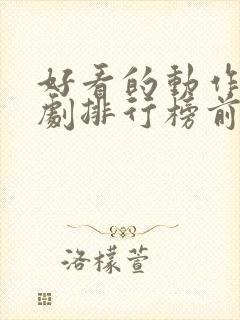 好看的動作
劇排行榜前
洛檬萱